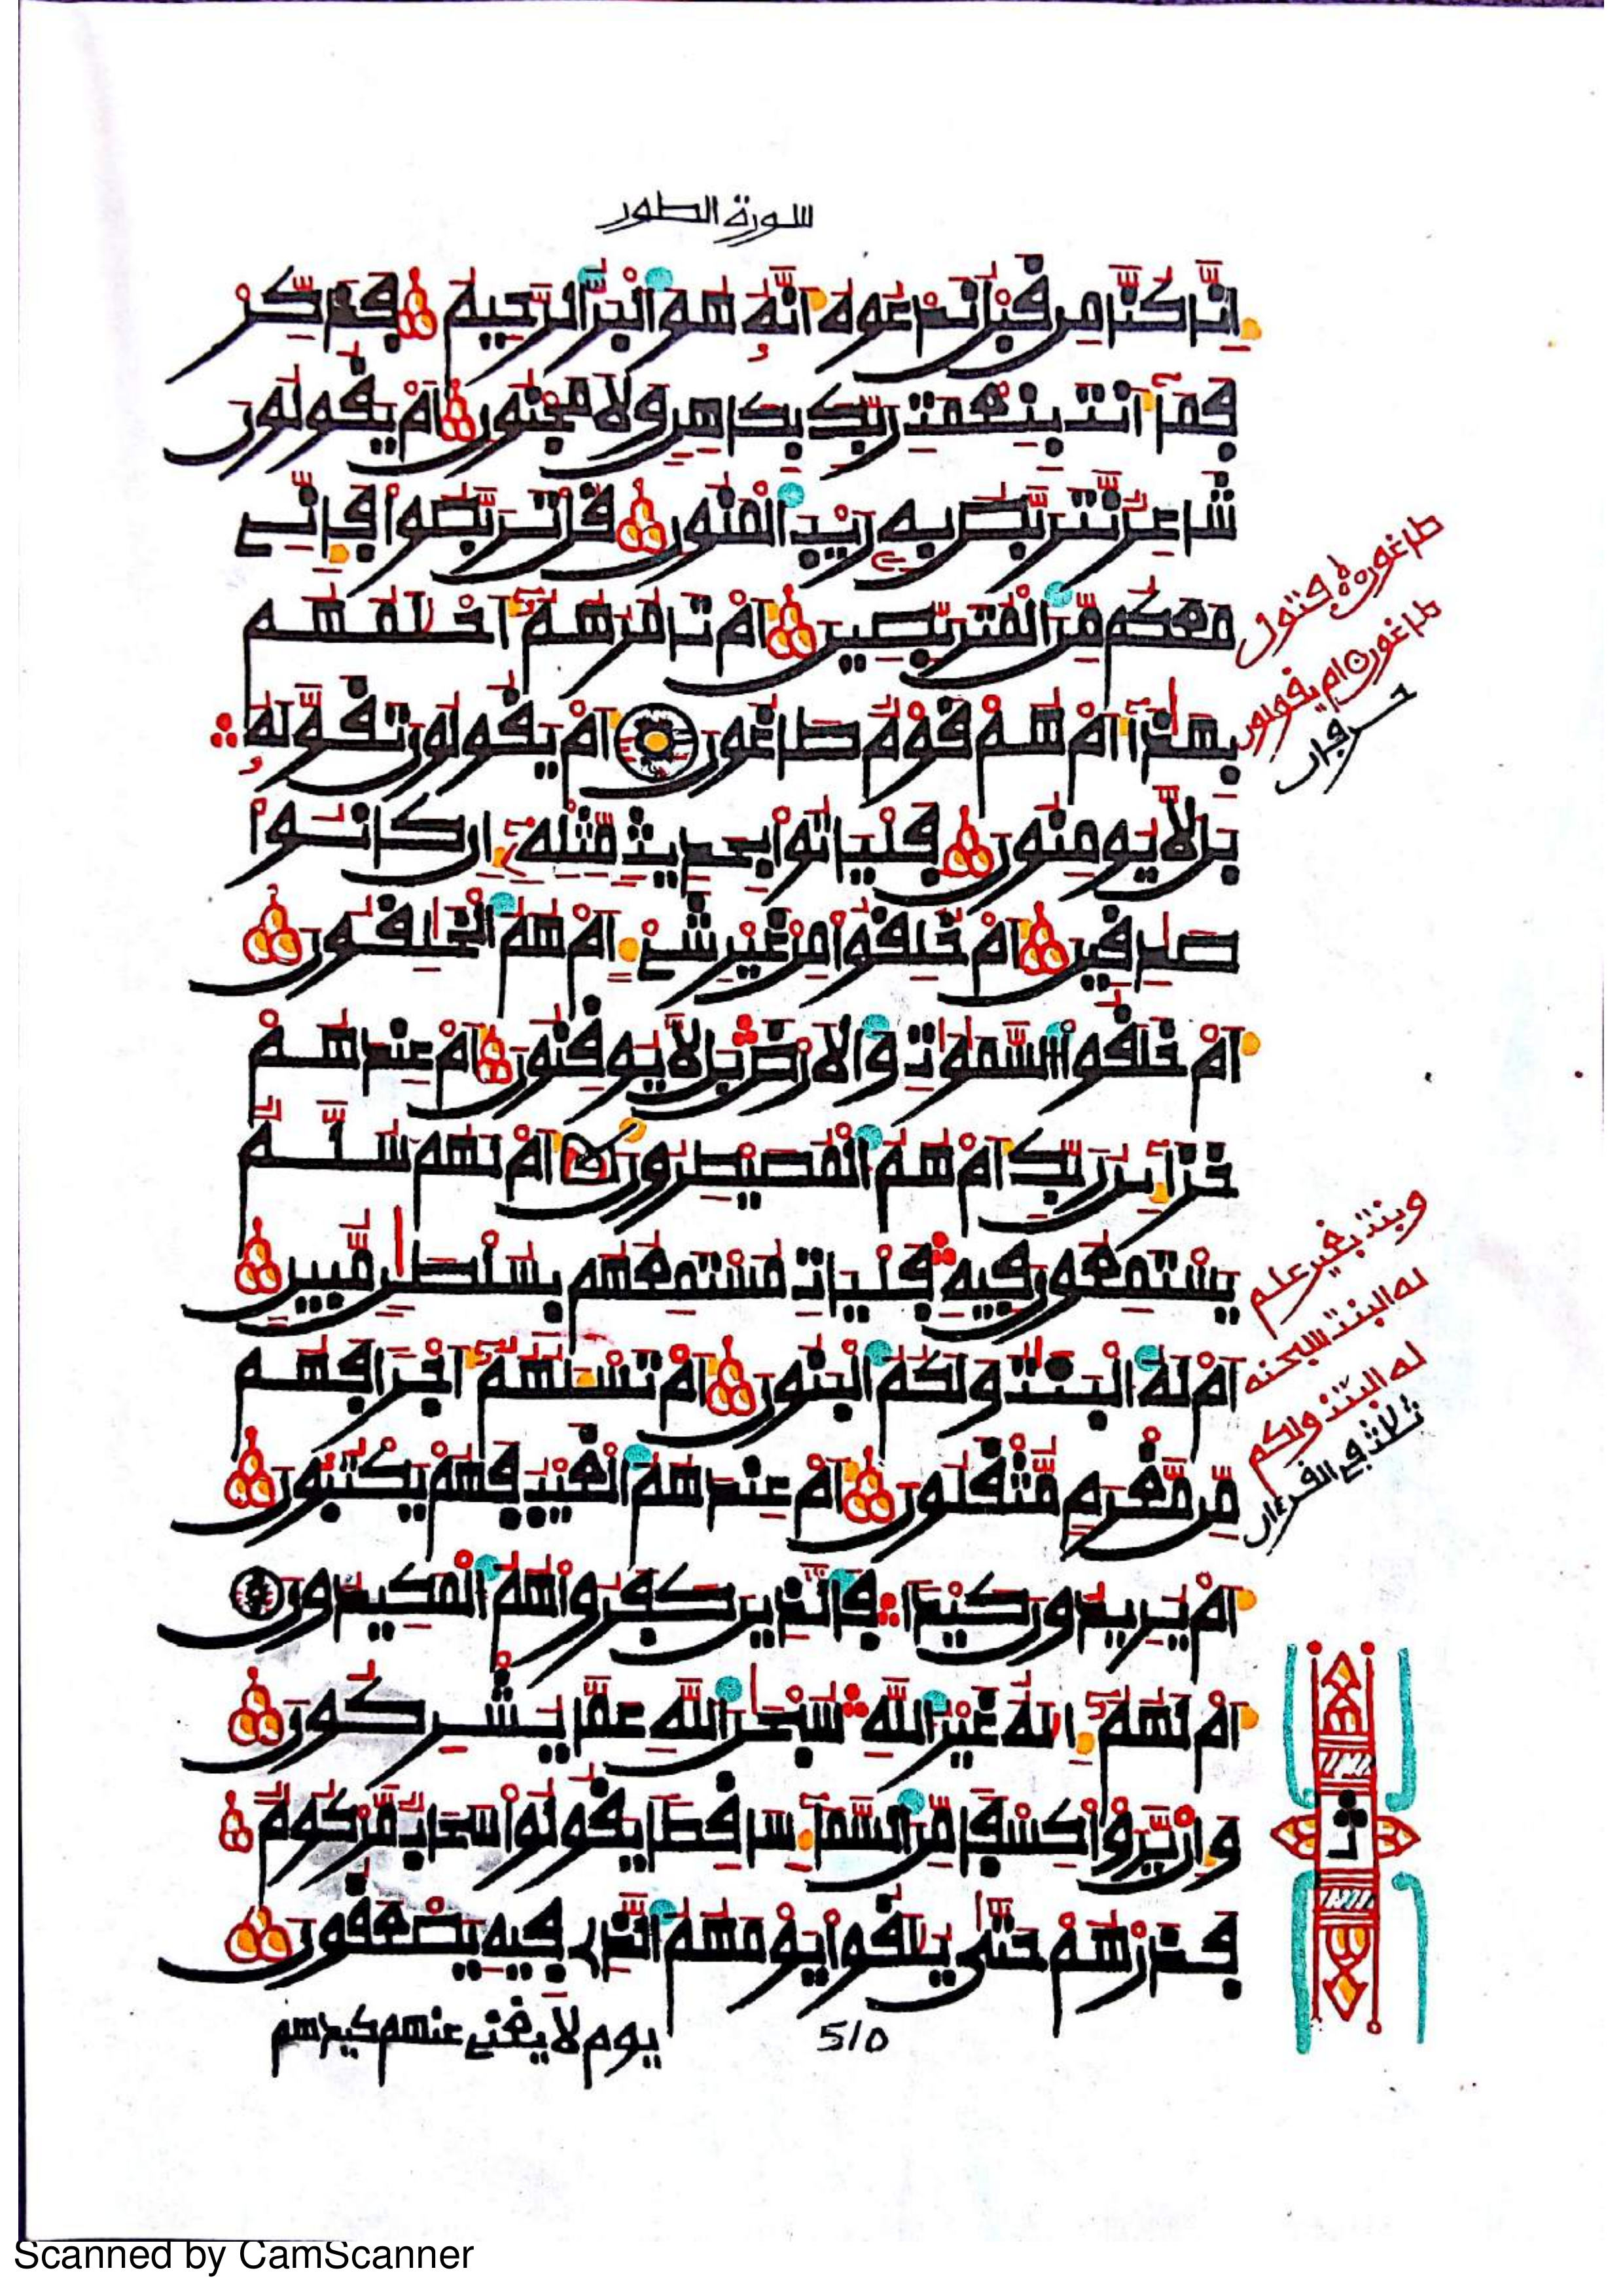 سورة الطور
إنا كنا من قبل ندعوه أنه هو البر الرحيم فذكر
فما أنت بنعمت ربك بكاهن ولا مجنون أم يقولون
شاعر نتربص به ريب المنون قل تربصوا فإني
معكم من المتربصين أم تامرهم أحلمهم
بهذا أم هم قوم طاغون أم يقولون تقوله
بل لا يومنون فلياتوا بحديث مثله إن كانوا
صدقين أم خلقوا من غير شيء أم هم الخلقون
أم خلقوا السموت والارض بل لا يوقنون أم عندهم
خزاين ربك أم هم المصيطرون أم لهم سلم
يستمعون فيه فليات مستمعهم بسلطن مبين
أم له البنت ولكم البنون أم تسئلهم أجرا فهم
من مغرم مثقلون أم عندهم الغيب فهم يكتبون
أم يريدون كيدا فالذين كفروا هم المكيدون
أم لهم إله غير الله سبحن الله عما يشركون
وإن يروا كسفا من السماء ساقطا يقولوا سحاب مركوم
فذرهم حتى يلقوا يومهم الذي فيه يصعقون
يوم لا يغني عنهم كيدهم
510
طاغون فتول
طاغون أم يقولون
حرفان
وبنت بغير علم
له البنت سبحنه
له البنت ولكم
ثلاث في القرءان
Scanned by CamScanner